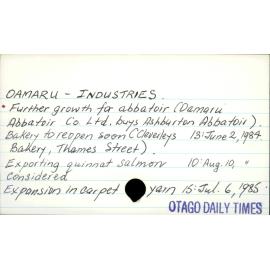 OAMARU - INDUSTRIES.
* Further growth for abbatoir (Oamaru
Abbatoir Co. Ltd. buys Ashburton Abbatoir).
Bakery to reopen soon (Cleverleys 13: June 2, 1984.
Bakery, Thames Street).
Exporting quinnat salmon 10: Aug. 10, "
Considered
Expansion in carpet yarn 15: Jul. 6, 1985.
OTAGO DAILY TIMES